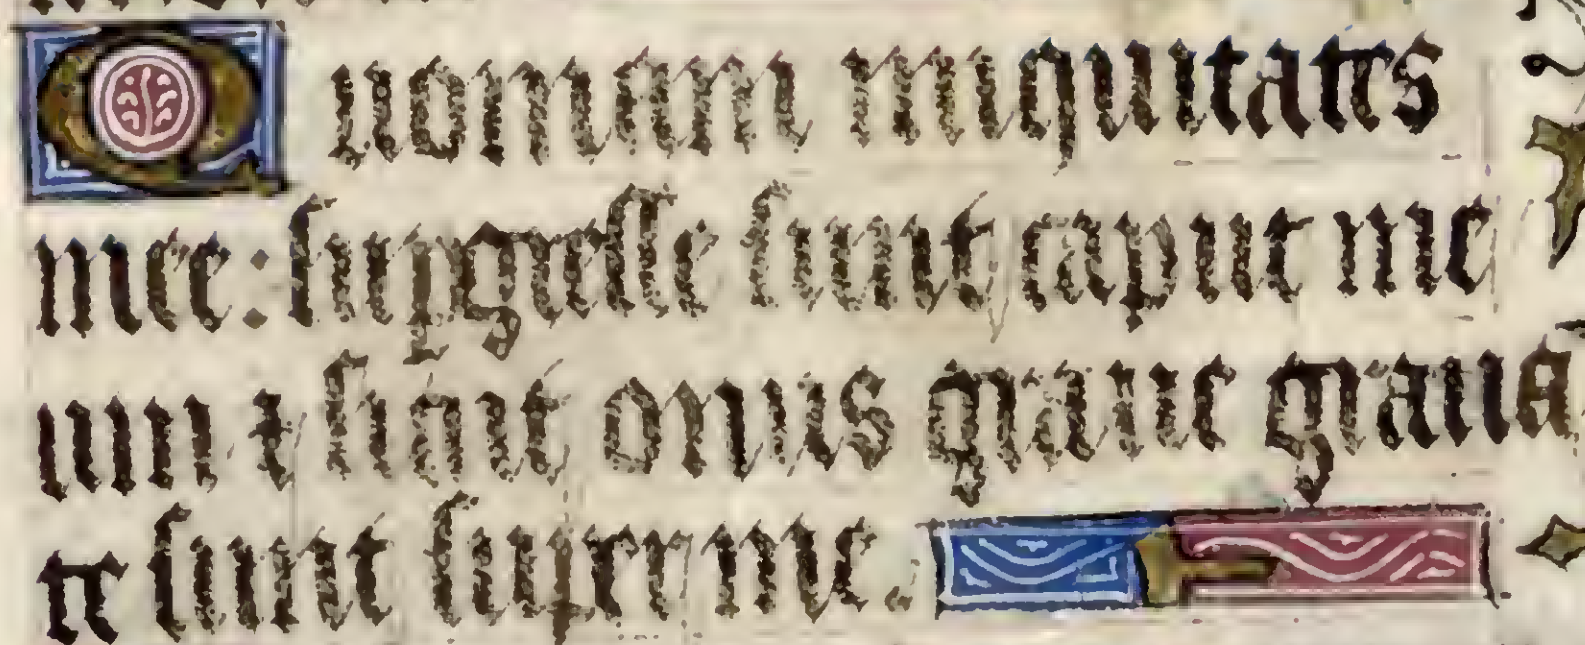 Quoniam iniquitates
mee: supgresse sunt caput me
um ⁊ sicut onus graue graua
te sunt super me.